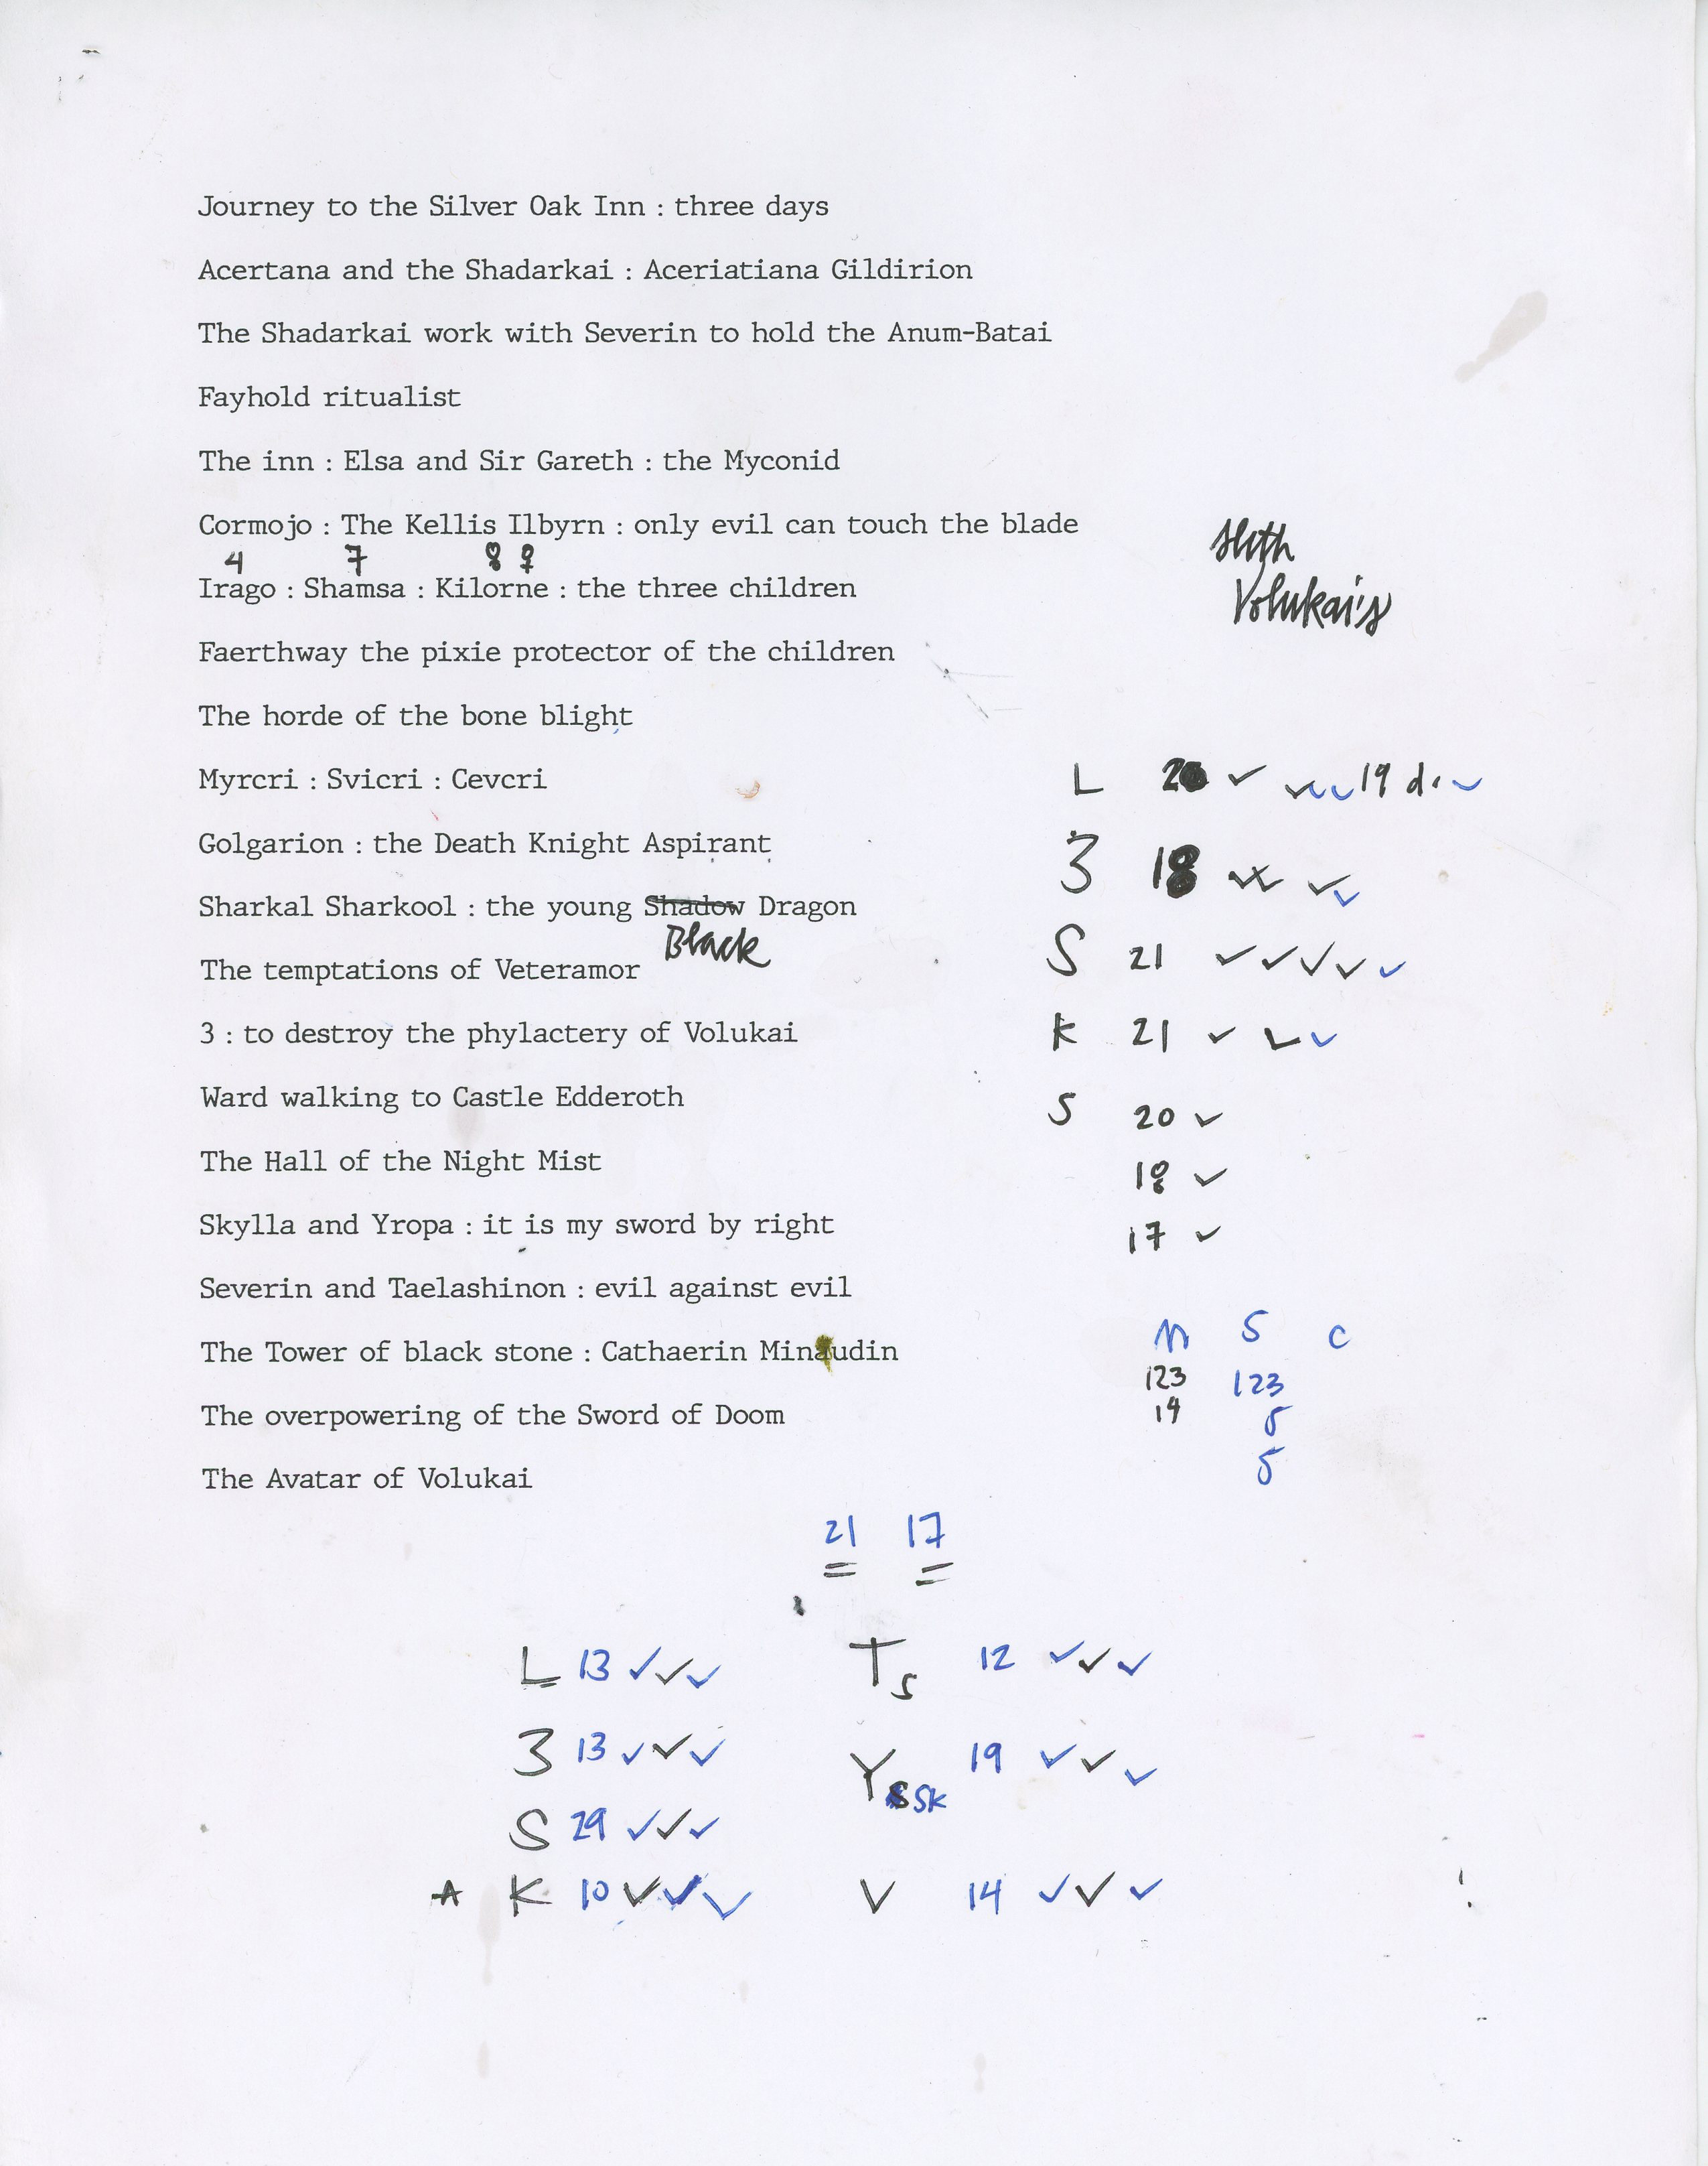 Journey to the Silver Oak Inn : three days
Acertana and the Shadarkai : Aceriatiana Gildirion
The Shadarkai work with Severin to hold the Anum-Batai
Fayhold ritualist
The inn : Elsa and Sir Gareth : the Myconid
Cormojo : The Kellis Ilbyrn : only evil can touch the blade
4 7 8 9
Irago : Shamsa : Kilorne : the three children
Volukai's
Faerthway the pixie protector of the children
The horde of the bone blight
Myrcri : Svicri : Cevcri
L 20 ✓ ✓✓✓ 19 d. ✓
Golgarion : the Death Knight Aspirant
3 18 ✓✓ ✓✓
Sharkal Sharkool : the young Shadow Dragon
Black
S 21 ✓✓✓✓✓
The temptations of Veteramor
3 : to destroy the phylactery of Volukai
K 21 ✓ ✓✓
Ward walking to Castle Edderoth
S 20 ✓
The Hall of the Night Mist
18 ✓
Skylla and Yropa : it is my sword by right
17 ✓
Severin and Taelashinon : evil against evil
M S C
The Tower of black stone : Cathaerin Minaudin
123 123
The overpowering of the Sword of Doom
19 5
5
The Avatar of Volukai
21 17
L 13 ✓✓✓ Ts 12 ✓✓✓
3 13 ✓✓✓ Y SK 19 ✓✓✓
S 29 ✓✓✓
A K 10 ✓✓✓ V 14 ✓✓✓